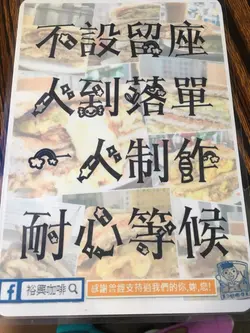 不設留座
人到落單
一人制作
耐心等候
f 裕興咖啡
感謝曾經支持過我們的你,妳,您!